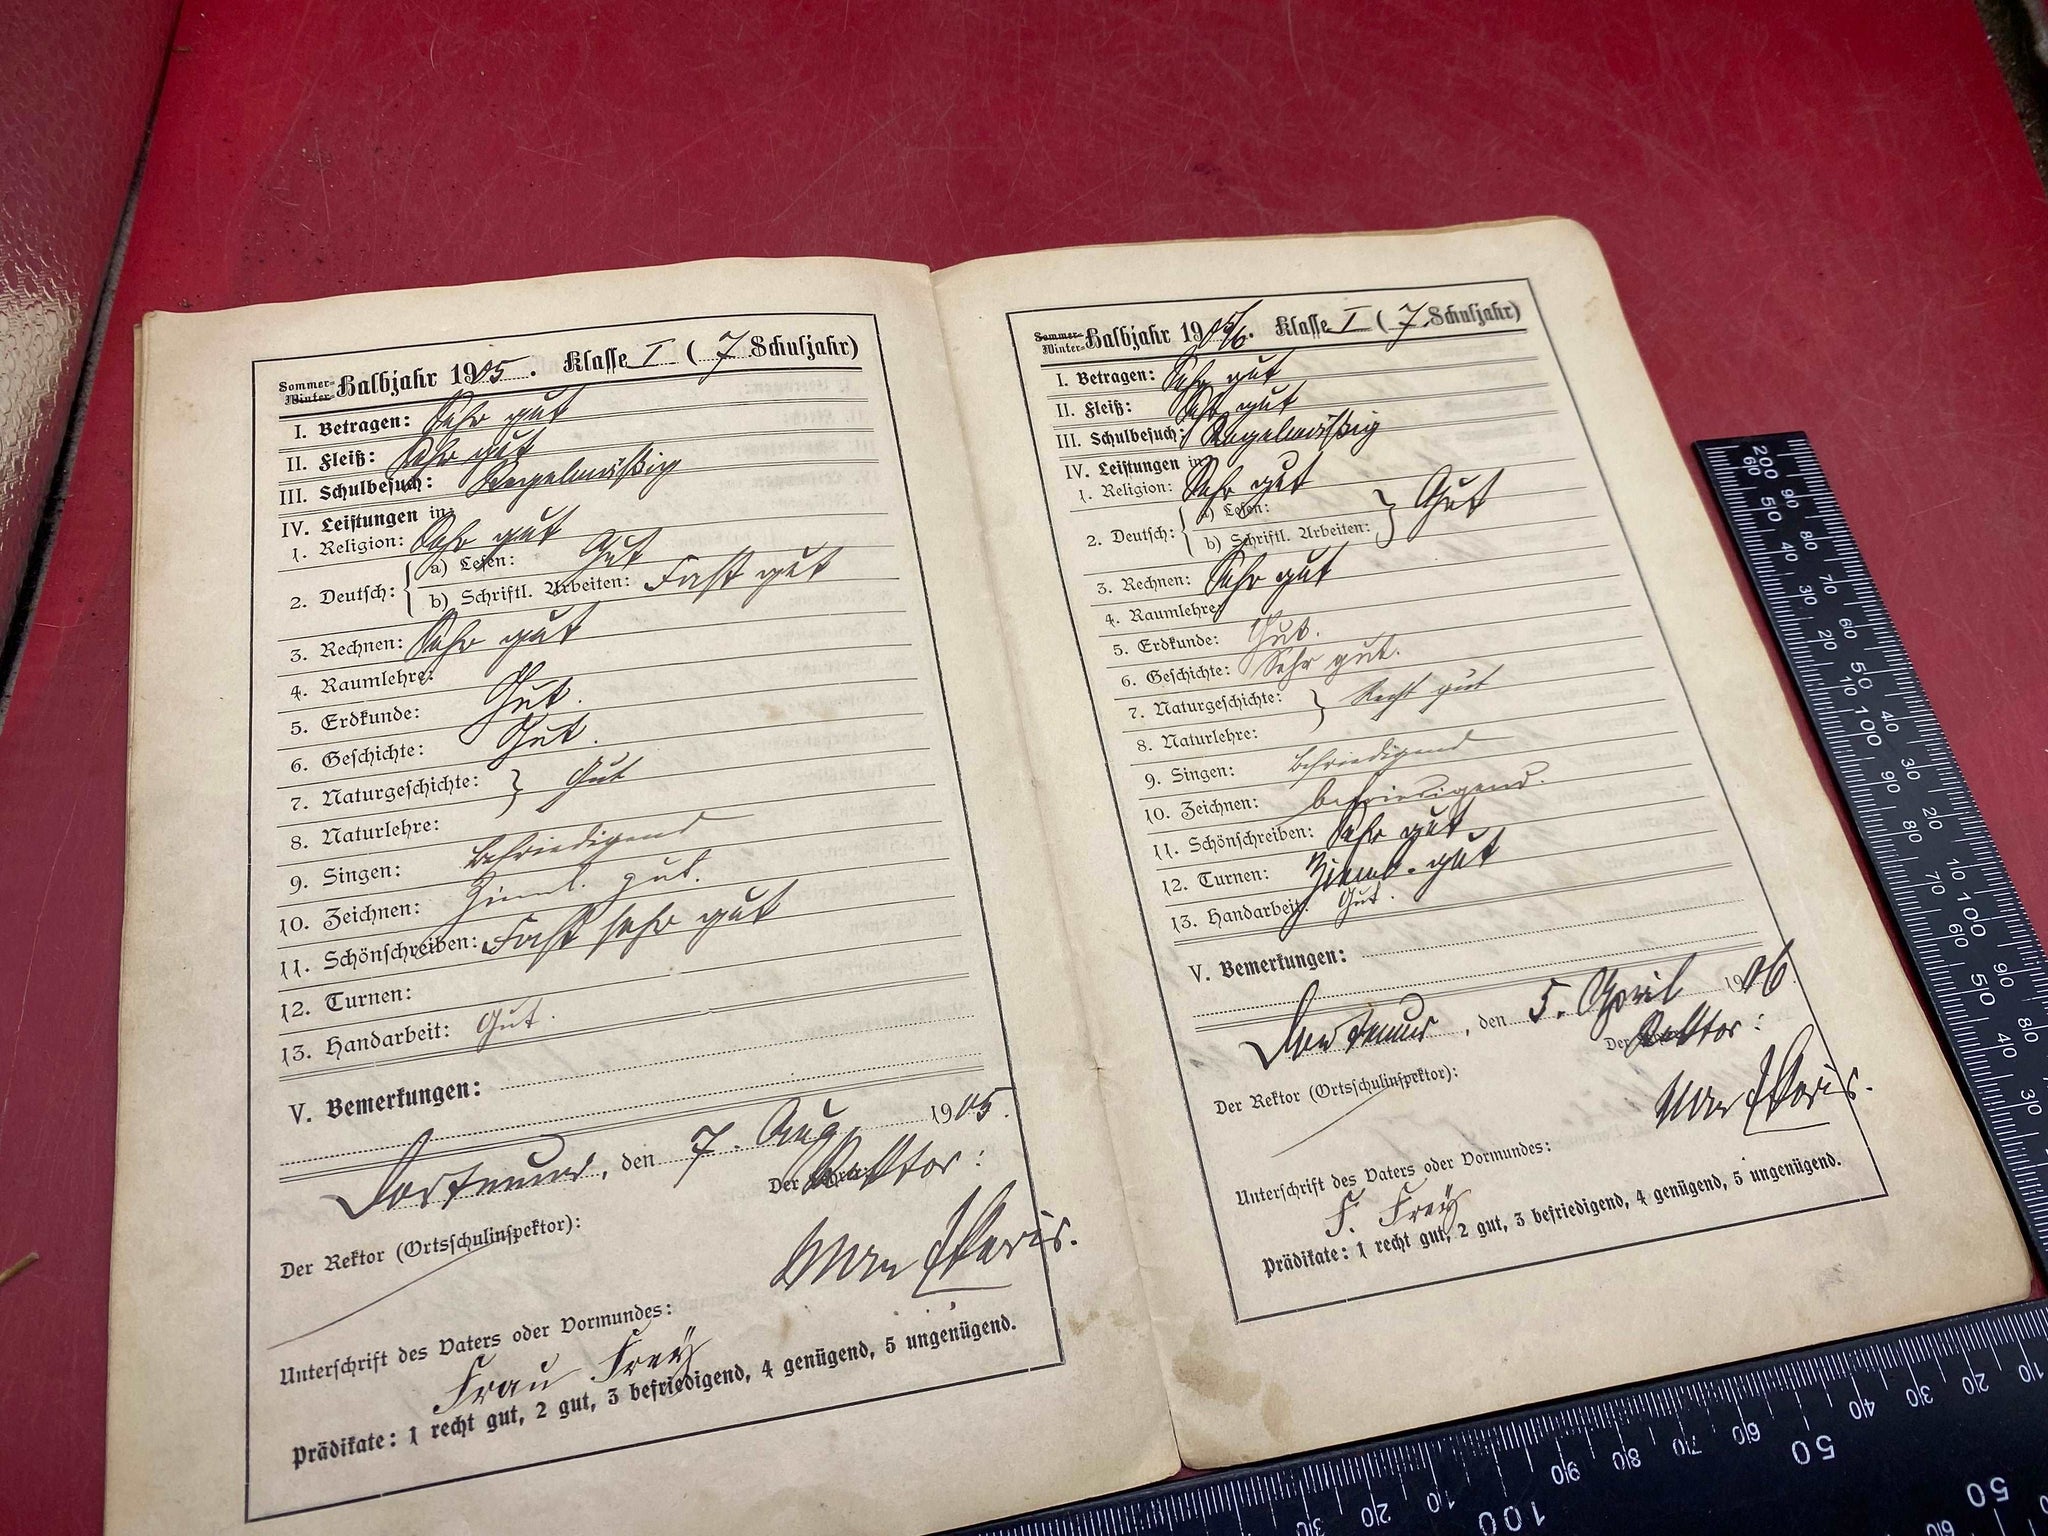 Sommer-
Winter- Halbjahr 1905. Klasse I (7 Schuljahr)
I. Betragen: Sehr gut
II. Fleiß: Sehr gut
III. Schulbesuch: Regelmäßig
IV. Leistungen in:
1. Religion: Sehr gut
2. Deutsch: { a) Lesen: Gut
b) Schriftl. Arbeiten: Fast gut
3. Rechnen: Sehr gut
4. Raumlehre:
5. Erdkunde: Gut.
6. Geschichte: Gut.
7. Naturgeschichte: } Gut
8. Naturlehre:
9. Singen: Befriedigend
10. Zeichnen: Zieml. gut.
11. Schönschreiben: Fast sehr gut
12. Turnen:
13. Handarbeit: Gut.
V. Bemerkungen:
Dortmund, den 7. Aug. 1905.
Der Rektor:
Der Rektor (Ortsschulinspektor):
Unterschrift des Vaters oder Vormundes:
Frau Frey
Prädikate: 1 recht gut, 2 gut, 3 befriedigend, 4 genügend, 5 ungenügend.
Sommer-
Winter- Halbjahr 1905/6. Klasse I (7. Schuljahr)
I. Betragen: Sehr gut
II. Fleiß: Sehr gut
III. Schulbesuch: Regelmäßig
IV. Leistungen in:
1. Religion: Sehr gut
2. Deutsch: { a) Lesen:
b) Schriftl. Arbeiten: } Gut
3. Rechnen: Sehr gut
4. Raumlehre:
5. Erdkunde: Gut.
6. Geschichte: Sehr gut.
7. Naturgeschichte: } Recht gut
8. Naturlehre:
9. Singen: Befriedigend
10. Zeichnen: Befriedigend.
11. Schönschreiben: Sehr gut.
12. Turnen: Zieml. gut
13. Handarbeit: Gut.
V. Bemerkungen:
Dortmund, den 5. April 1906.
Der Rektor:
Der Rektor (Ortsschulinspektor):
Unterschrift des Vaters oder Vormundes:
F. Frey
Prädikate: 1 recht gut, 2 gut, 3 befriedigend, 4 genügend, 5 ungenügend.